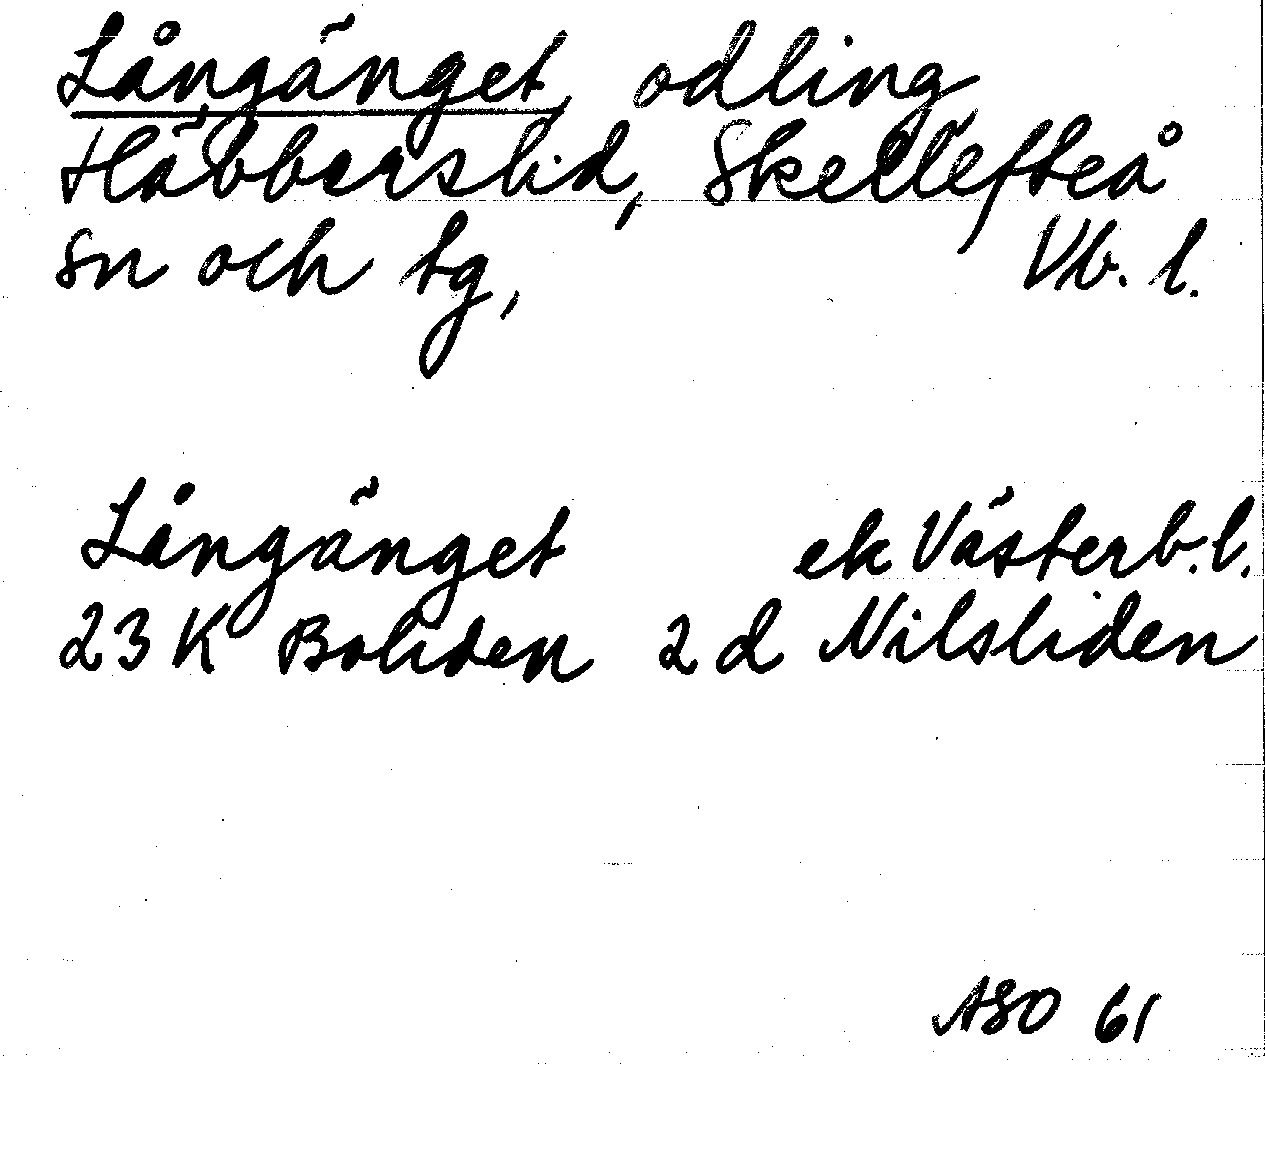 Långänget, odling
Häbbersliden, Skellefteå
sn och tg, Vb. l.
Långänget ek Västerb. l.
23 K Boliden 2 d Nilsliden
ASO 61